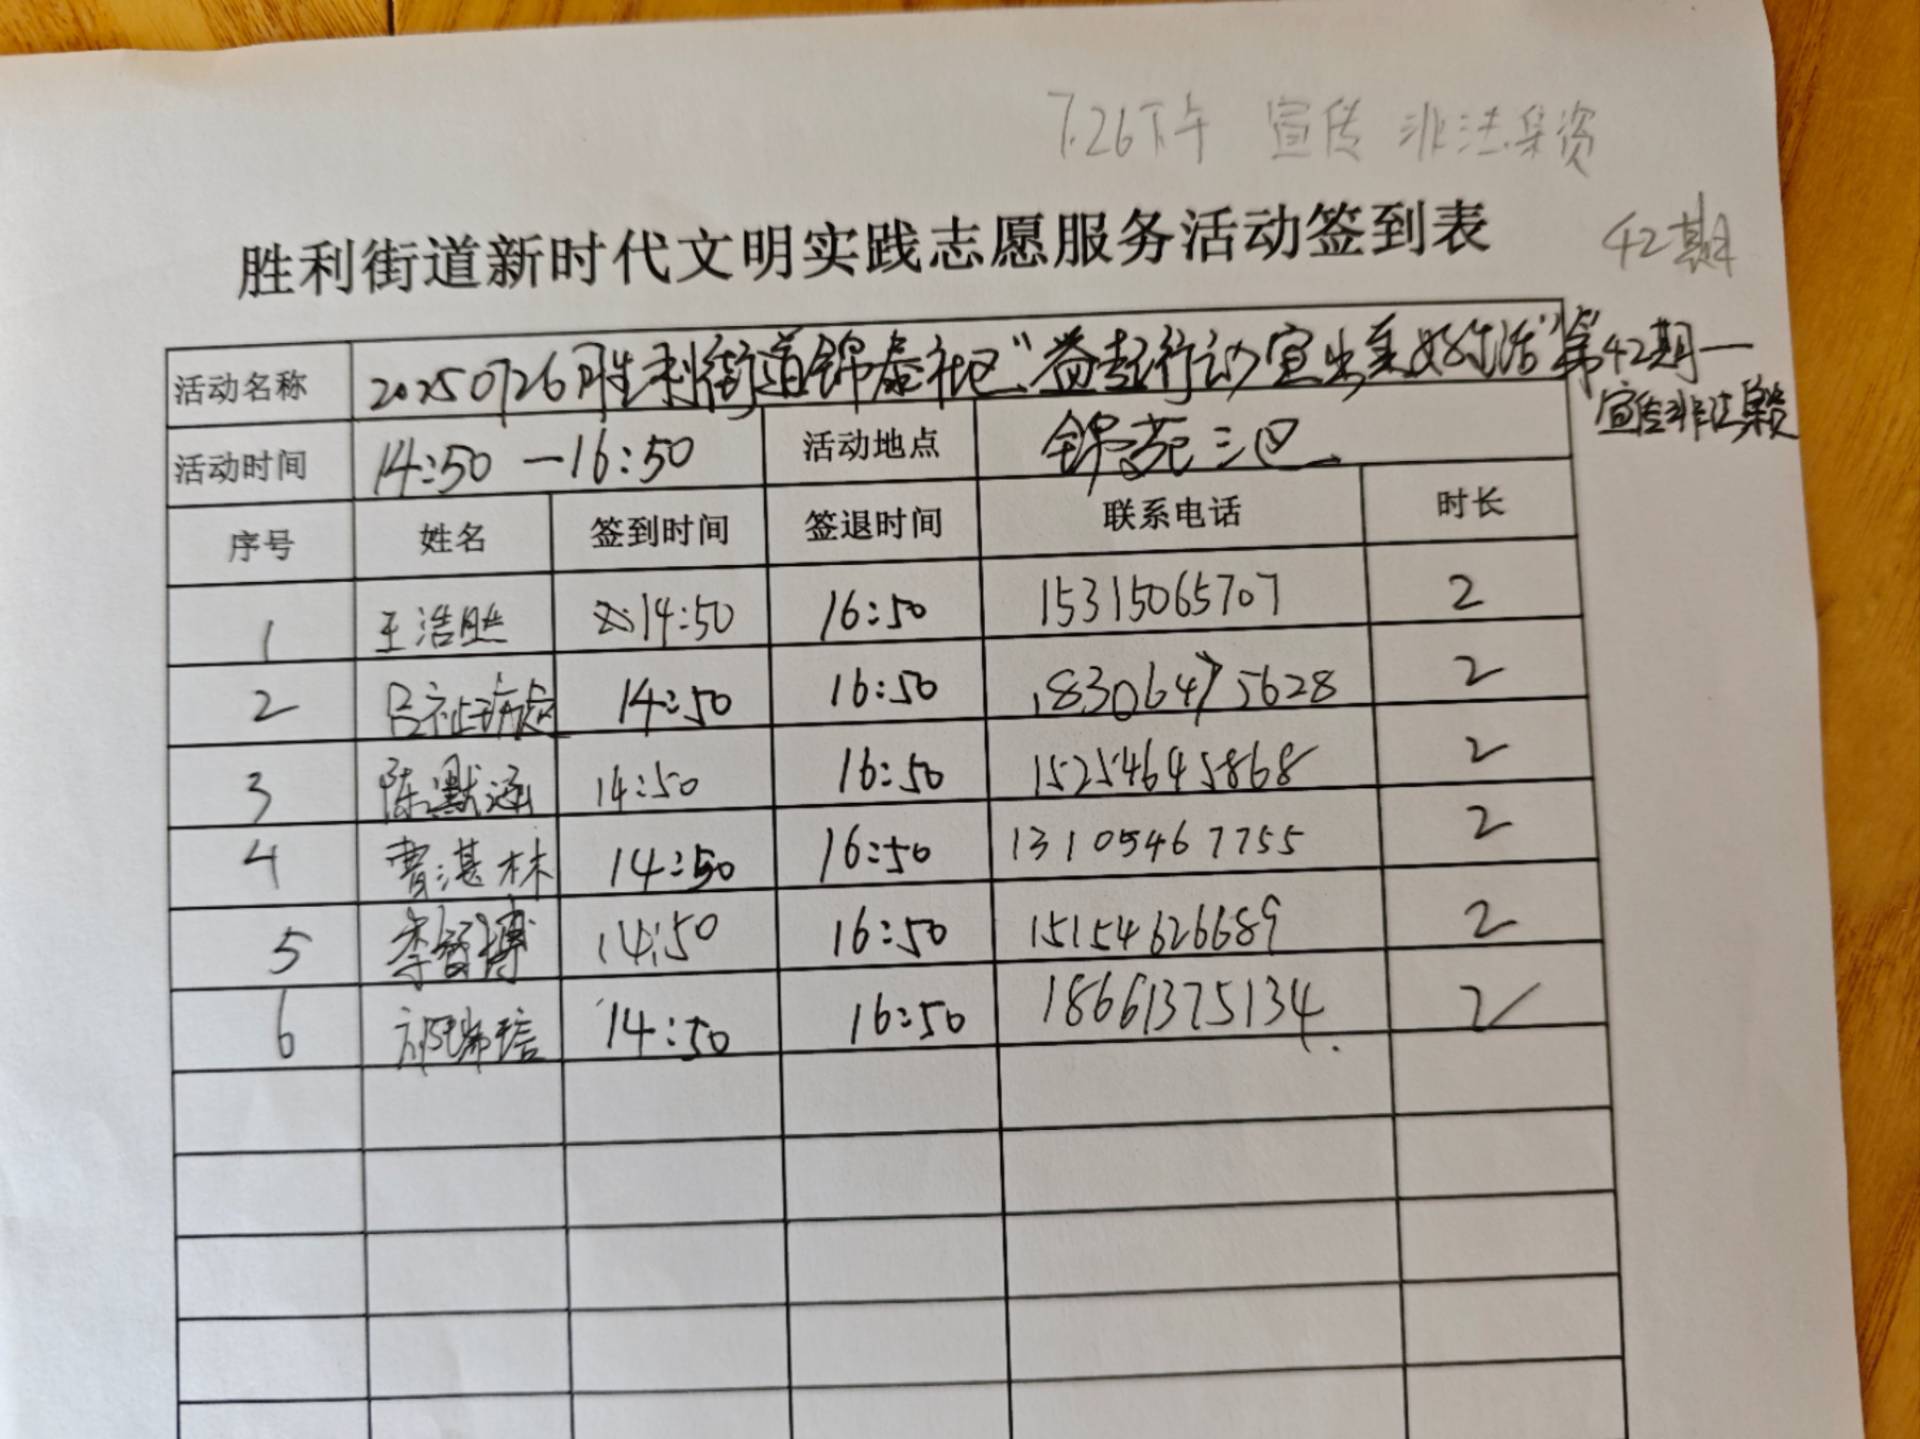 7.26下午 宣传 非法集资
胜利街道新时代文明实践志愿服务活动签到表
42期
活动名称 20250726胜利街道锦泰社区"益起行动 宣出美好生活"第42期—
宣传非法集资
活动时间 14:50—16:50 活动地点 锦苑三区
序号 姓名 签到时间 签退时间 联系电话 时长
1 王浩然 14:50 16:50 15315065707 2
2 吕祉 14:50 16:50 18306475628 2
3 陈默涵 14:50 16:50 15254645868 2
4 曹湛林 14:50 16:50 13105467755 2
5 李智博 14:50 16:50 15154626689 2
6 14:50 16:50 18661375134 2